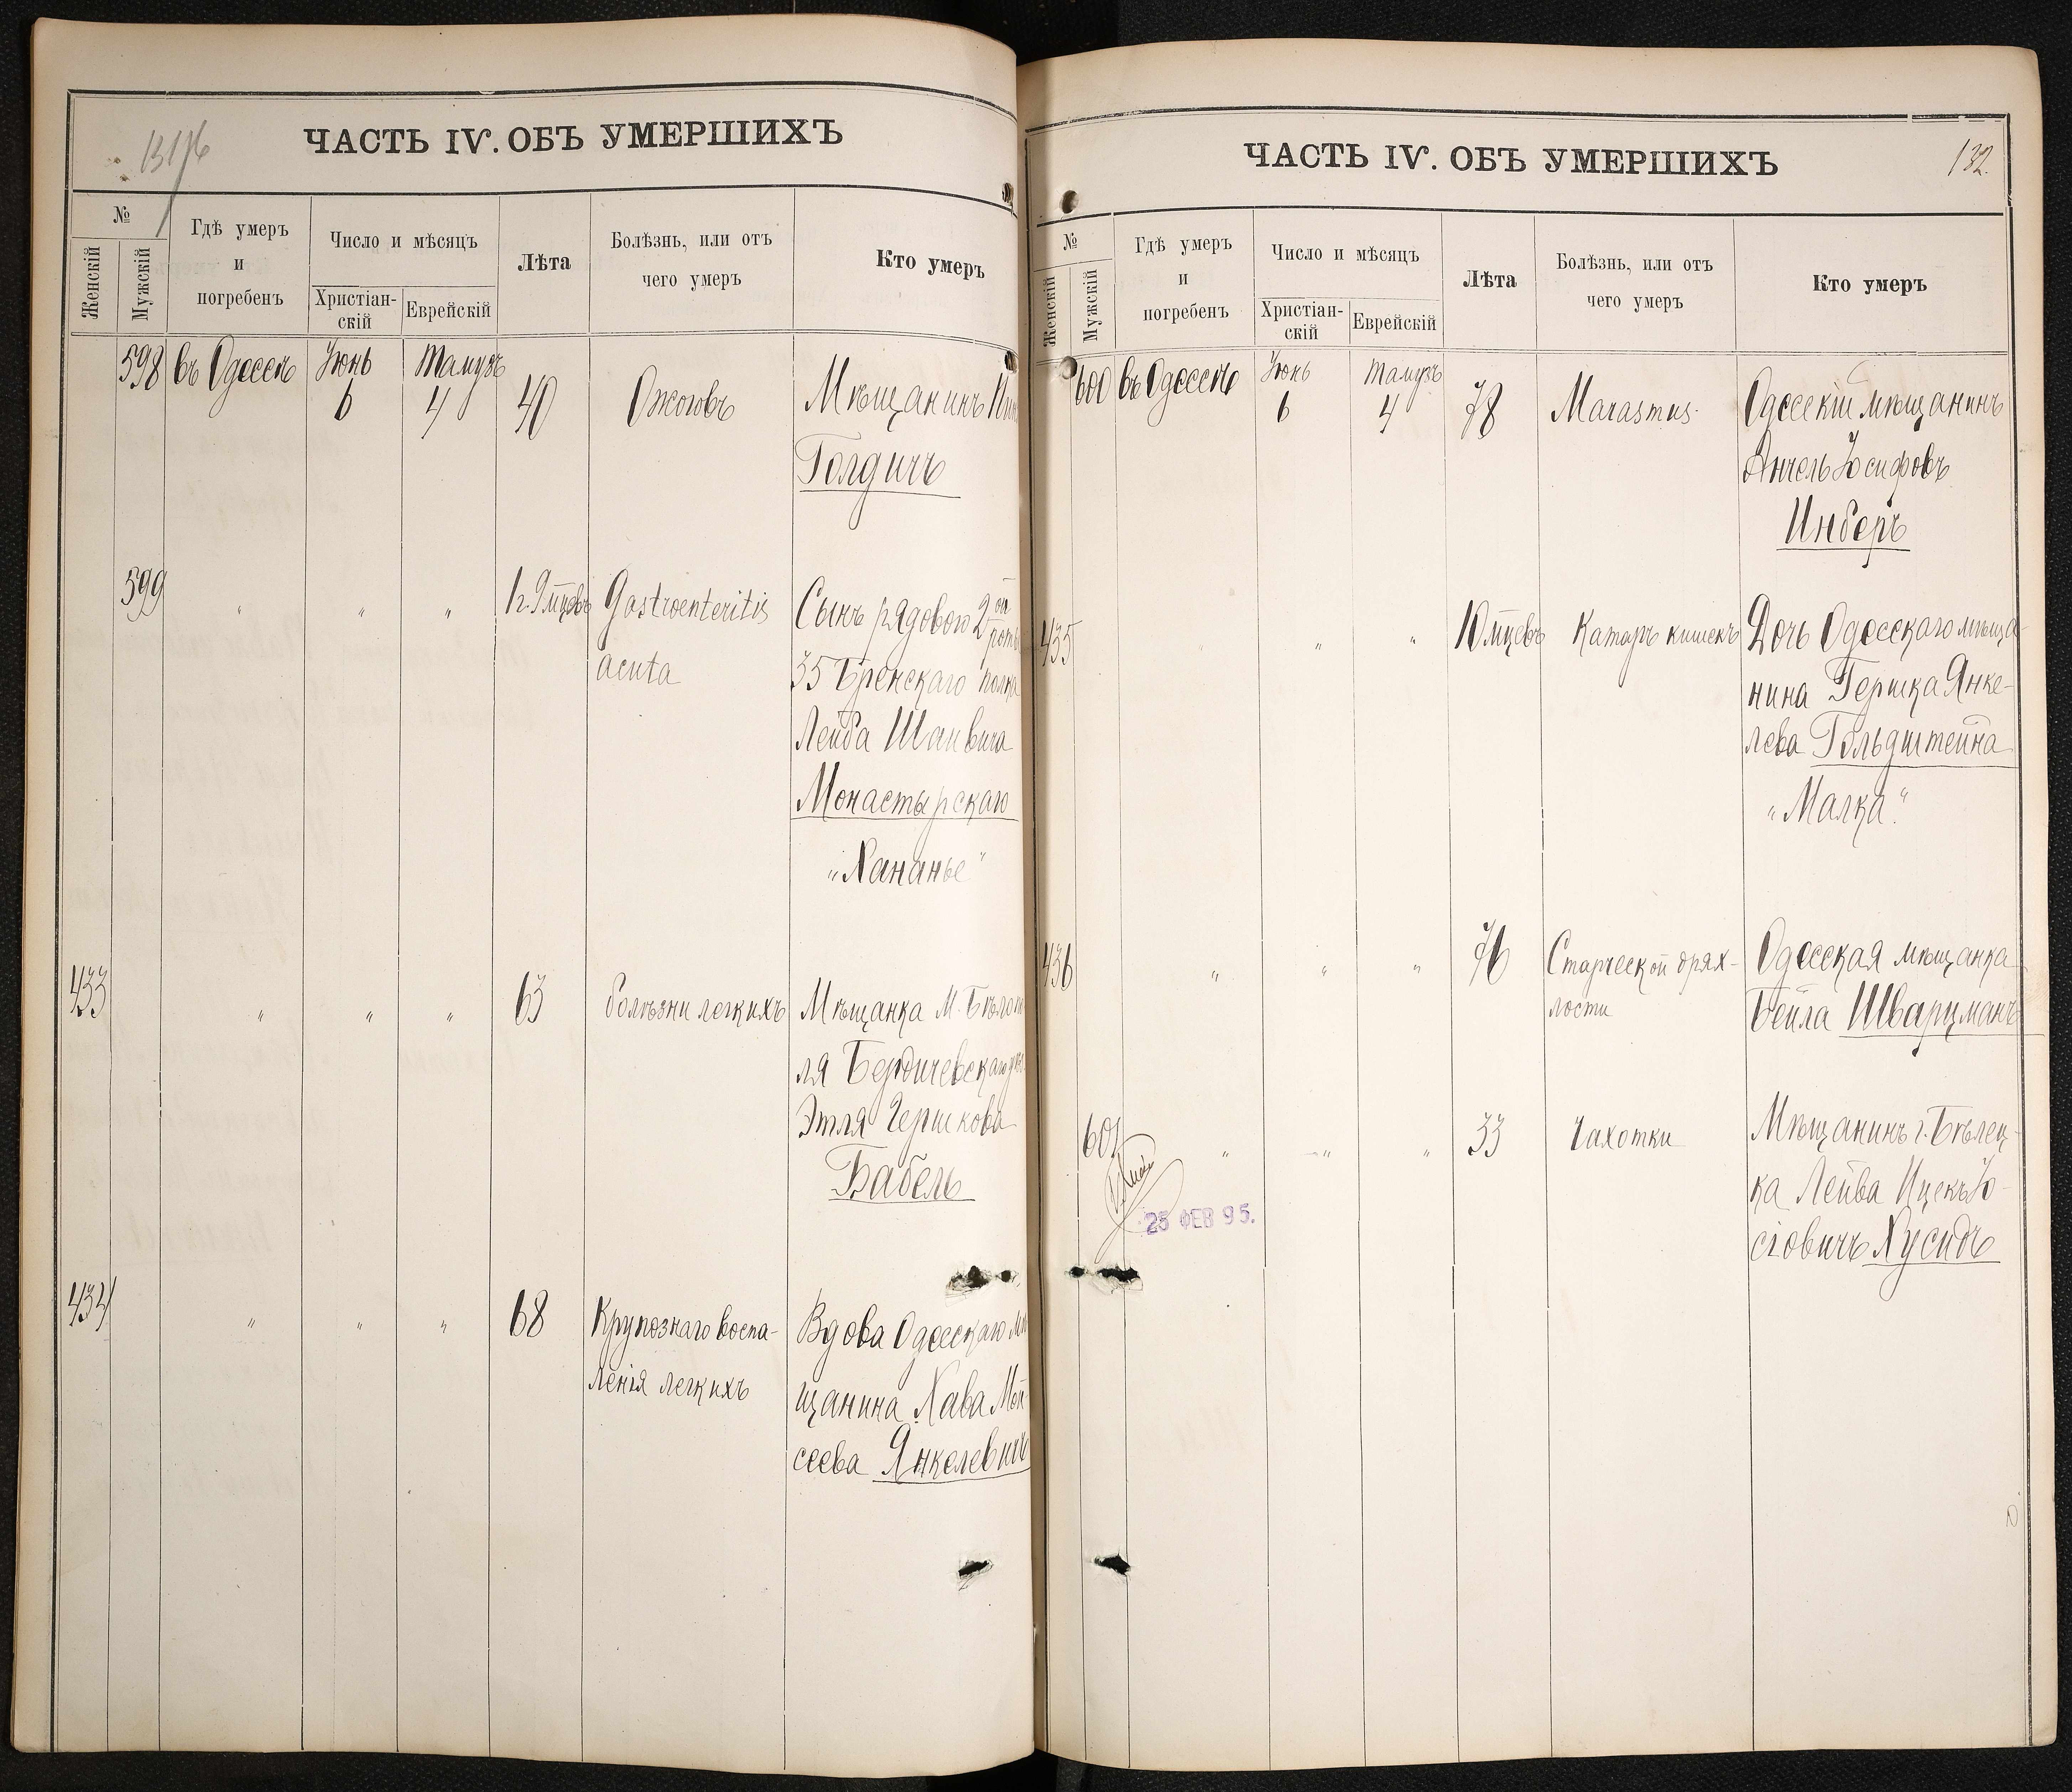 ЧАСТЬ IV. ОБЪ УМЕРШИХЪ
№
Женскій
Мужскій
Гдѣ умеръ
и
погребенъ
Число и мѣсяцъ
Христіан-
скій
Еврейскій
Лѣта
Болѣзнь, или отъ
чего умеръ
Кто умеръ
598 въ Одессѣ Іюнь 6 Тамузъ 4 40 Ожоговъ Мѣщанинъ
Голдичъ
599 " " " 1 г. 9 мцовъ Gastroenteritis
acuta
Сынъ рядового 2ой роты
35 Брянскаго полка
Лейба
Монастырскаго
"Хананье"
433 " " " 63 болѣзни легкихъ Мѣщанка М. Бѣлопо
ля Бердичевскаго
Этля Гершкова
Бабель
434 " " " 68 Крупознаго воспа-
ленія легкихъ
Вдова Одесскаго мѣ
щанина Хава Мой
сеева Янкелевичъ
ЧАСТЬ IV. ОБЪ УМЕРШИХЪ
132.
№
Женскій
Мужскій
Гдѣ умеръ
и
погребенъ
Число и мѣсяцъ
Христіан-
скій
Еврейскій
Лѣта
Болѣзнь, или отъ
чего умеръ
Кто умеръ
600 въ Одессѣ Іюнь 6 Тамузъ 4 78 Marasmus. Одесскій мѣщанинъ
Анчель Іосифовъ
Инберъ
435 " " 10 мцевъ Катаръ кишекъ Дочь Одесскаго мѣща-
нина Гершка Янке-
лева Гольдштейна
"Малка."
436 " " " 76 Старческой дрях-
лости
Одесская мѣщанка
Бейла Шварцманъ
601 " " " 33 Чахотки Мѣщанинъ г. Бѣлец-
ка Лейба Ицекъ Іо-
сіовичъ Хусидъ
25 ФЕВ 95.